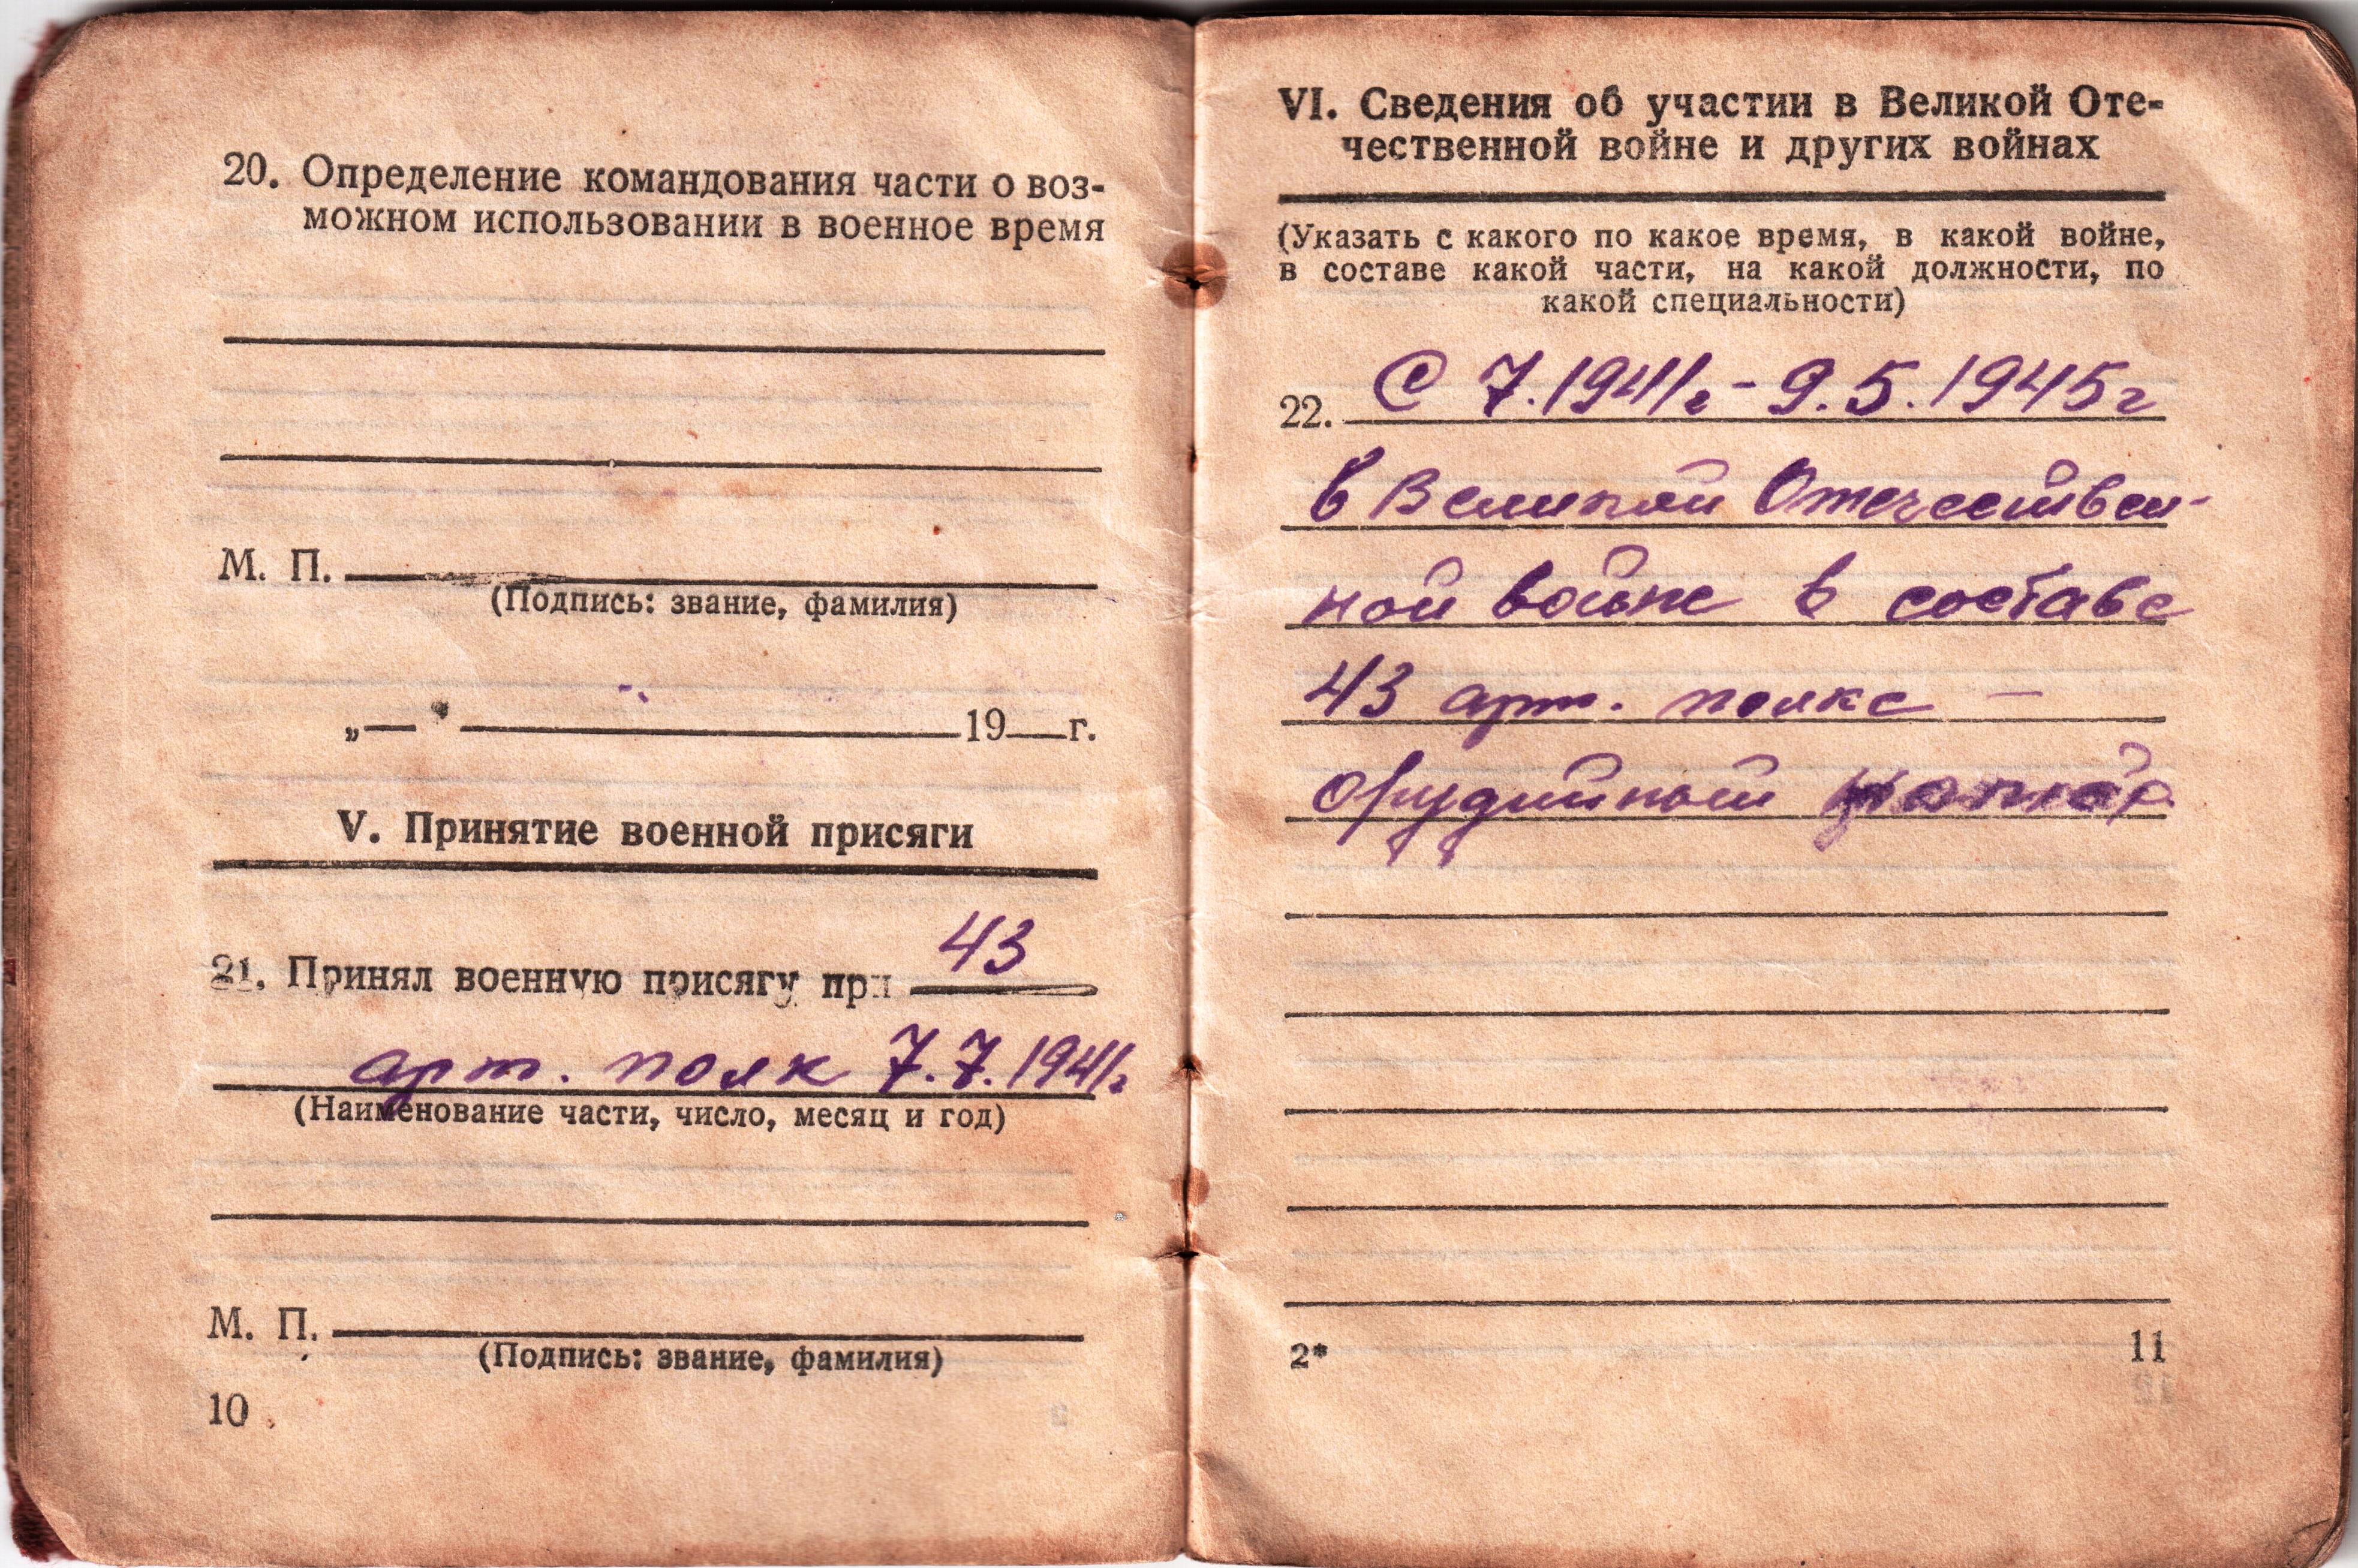 20. Определение командования части о воз-
можном использовании в военное время
М. П.
(Подпись: звание, фамилия)
„— “ 19 г.
V. Принятие военной присяги
21. Принял военную присягу при 43
арт. полк 7.7.1941г
(Наименование части, число, месяц и год)
М. П.
(Подпись: звание, фамилия)
10
VI. Сведения об участии в Великой Оте-
чественной войне и других войнах
(Указать с какого по какое время, в какой войне,
в составе какой части, на какой должности, по
какой специальности)
22. С 7.1941г - 9.5.1945г
в Великой Отечествен-
ной войне в составе
43 арт. полке —
орудийный
2*
11